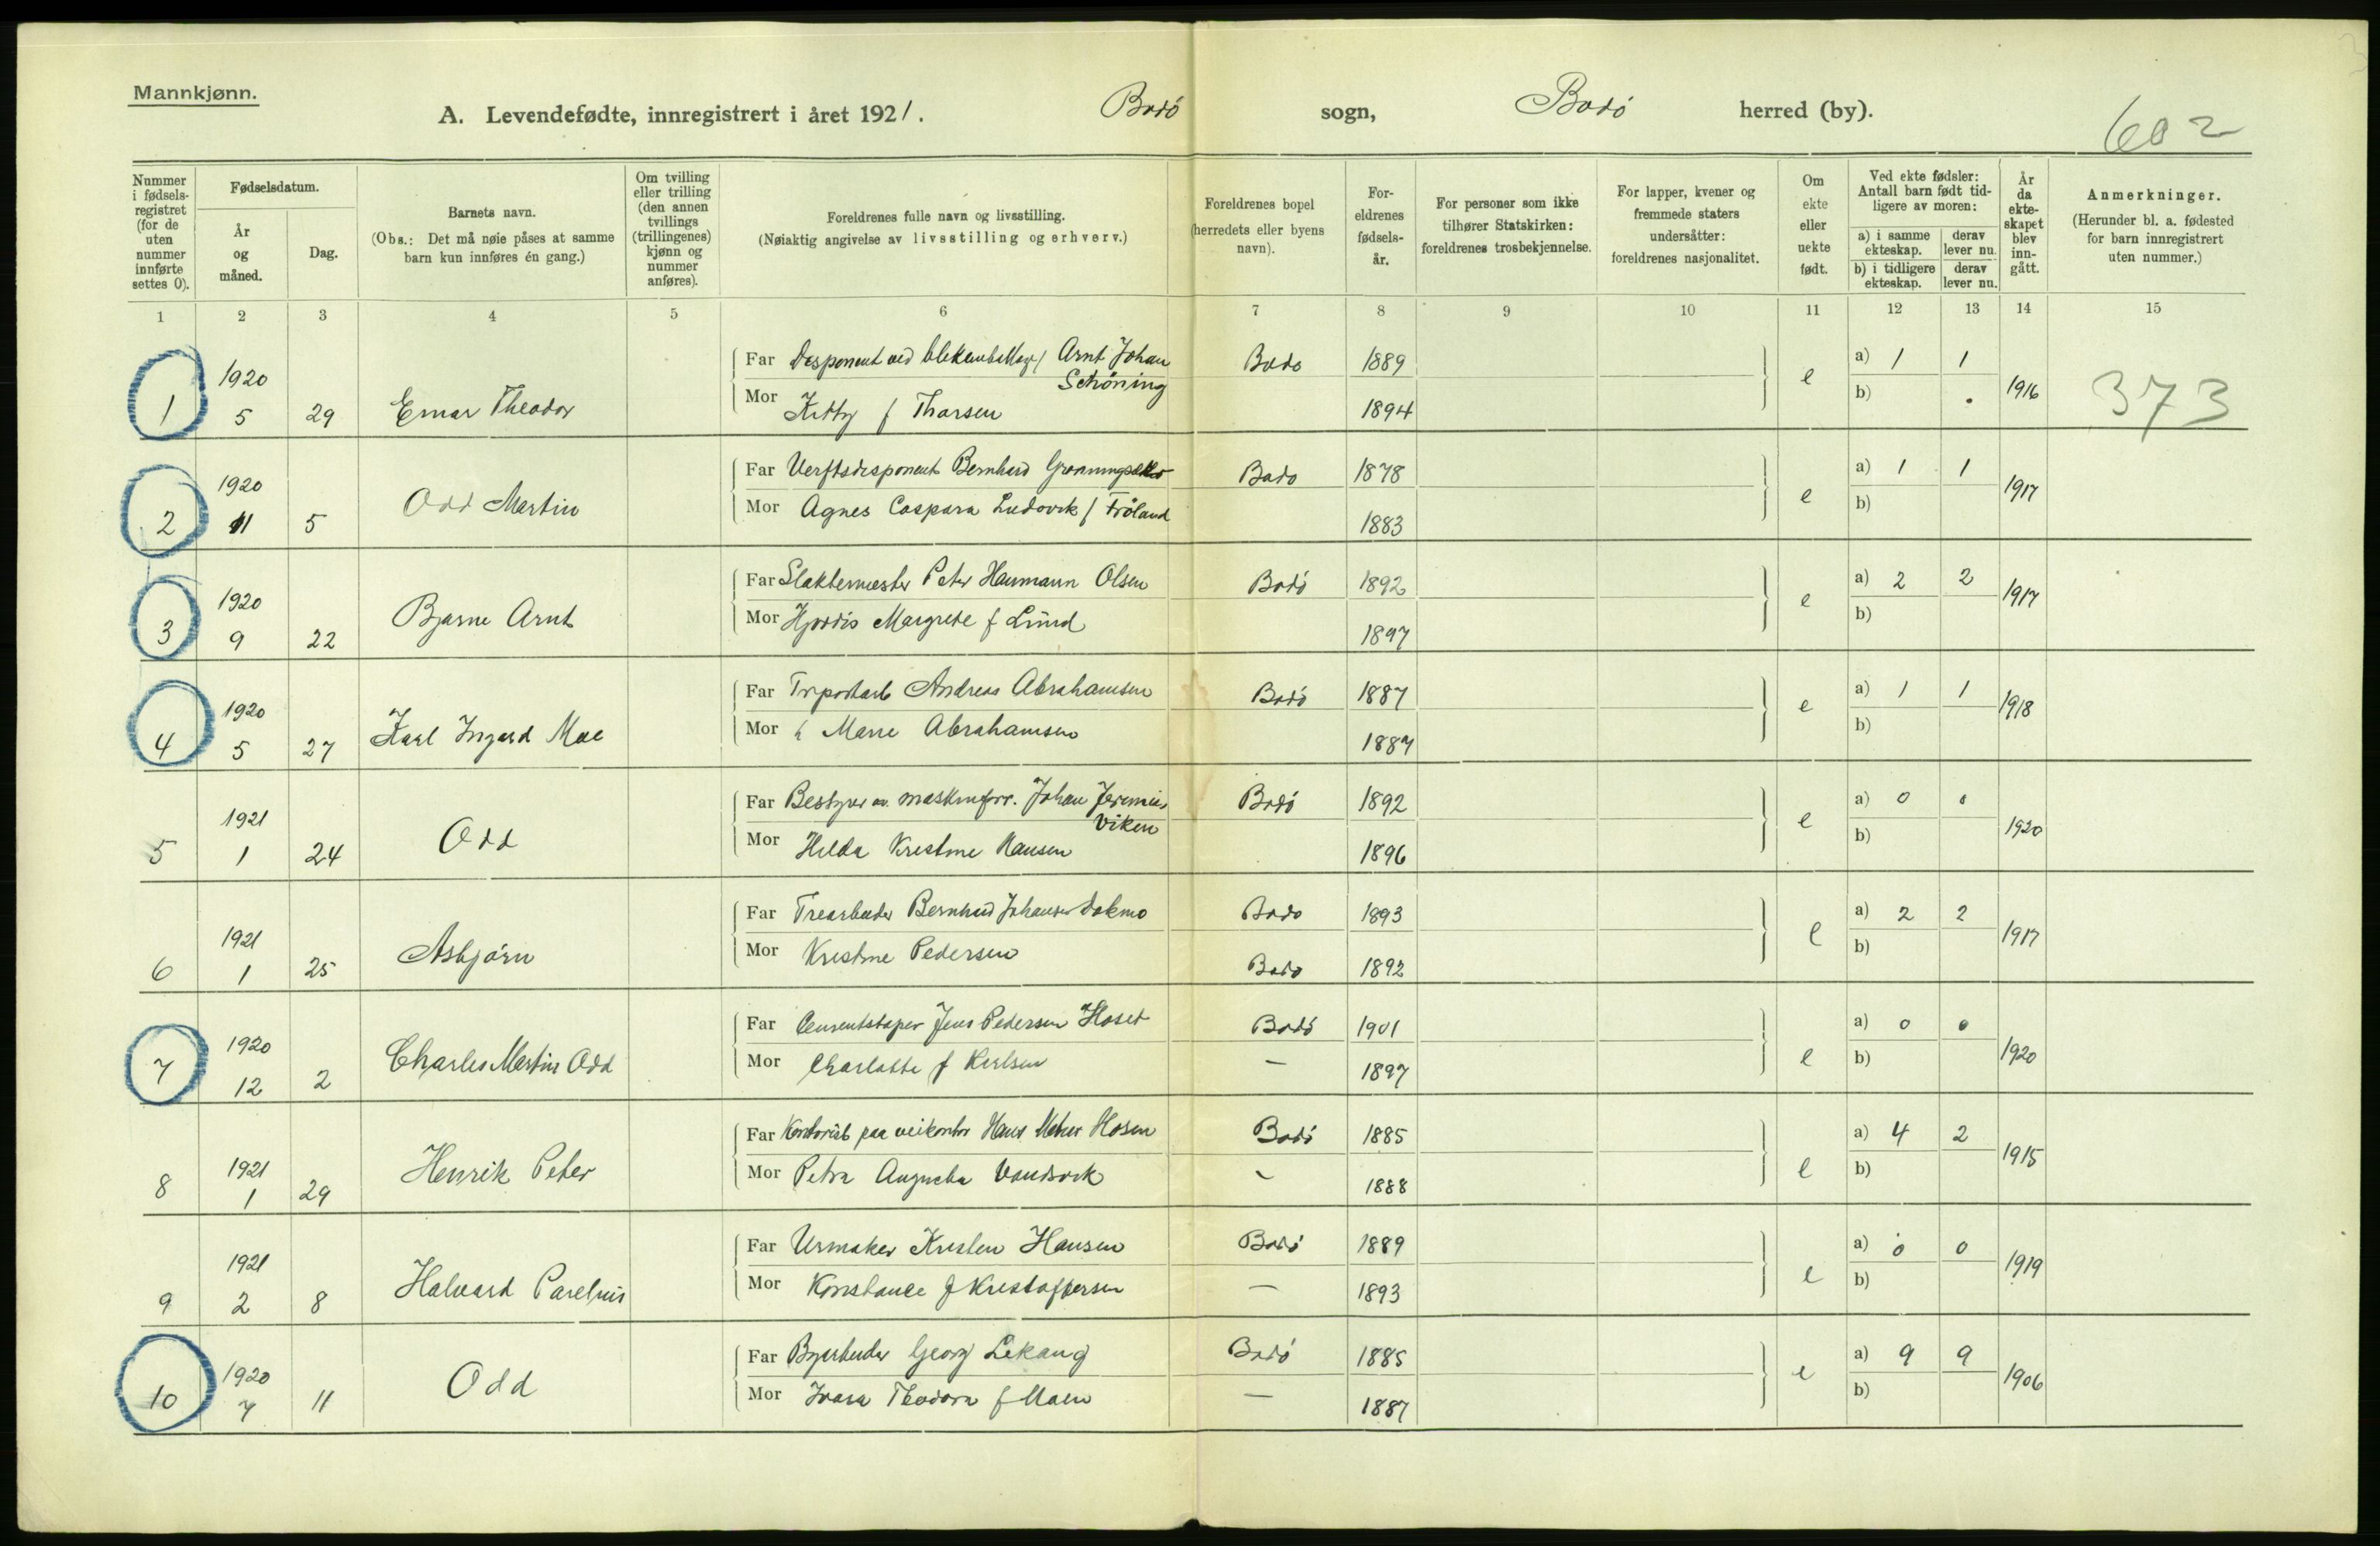 Mannkjønn.
A. Levendefødte, innregistrert i året 1921. Bodö sogn, Bodö herred (by).
602
Nummer i fødsels-registret (for de uten nummer innførte settes 0).
Fødselsdatum.
År og måned.
Dag.
Barnets navn.
(Obs.: Det må nøie påses at samme barn kun innføres én gang.)
Om tvilling eller trilling (den annen tvillings (trillingenes) kjønn og nummer anføres).
Foreldrenes fulle navn og livsstilling.
(Nøiaktig angivelse av livsstilling og erhverv.)
Foreldrenes bopel (herredets eller byens navn).
For-eldrenes fødsels-år.
For personer som ikke tilhører Statskirken: foreldrenes trosbekjennelse.
For lapper, kvener og fremmede staters undersåtter: foreldrenes nasjonalitet.
Om ekte eller uekte født.
Ved ekte fødsler: Antall barn født tid-ligere av moren:
a) i samme ekteskap. derav lever nu.
b) i tidligere ekteskap. derav lever nu.
År da ekte-skapet blev inn-gått.
Anmerkninger.
(Herunder bl. a. fødested for barn innregistrert uten nummer.)
1 2 3 4 5 6 7 8 9 10 11 12 13 14 15
1 1920 5 29 Einar Theodor
Far Disponent ved Arnt Johan Schöning Bodö 1889
Mor Kitty f Thorsen 1894
e a) 1 1 b) 1916 373
2 1920 11 5 Odd Martin
Far Verftsdisponent Bernhard Bodo 1878
Mor Agnes Caspara Ludovik f Fröland 1883
e a) 1 1 b) 1917
3 1920 9 22 Bjarne Arnt
Far Slaktermester Peter Hermann Olsen Bodö 1892
Mor Hjördis Margrete f Lund 1897
e a) 2 2 b) 1917
4 1920 5 27 Karl Ingard Moe
Far Andreas Abrahamsen Bodö 1887
Mor Marie Abrahamsen 1887
e a) 1 1 b) 1918
5 1921 1 24 Odd
Far Bestyrer av maskinforr. Johan Jeremias Viken Bodö 1892
Mor Hilda Kristine Hansen 1896
e a) 0 0 b) 1920
6 1921 1 25 Asbjörn
Far Trearbeider Bernhard Johansen Dokmo Bodo 1893
Mor Kristine Pedersen Bodo 1892
e a) 2 2 b) 1917
7 1920 12 2 Charles Martin Odd
Far Cementstøper Jens Pedersen Hoset Bodö 1901
Mor Charlotte f Karlsen — 1897
e a) 0 0 b) 1920
8 1921 1 29 Henrik Peter
Far Kontorist paa veikontor Hans Hosen Bodö 1885
Mor Petra Augusta Vandvik — 1888
e a) 4 2 b) 1915
9 1921 2 8 Halvard Parelius
Far Urmaker Kristen Hansen Bodö 1889
Mor Konstance f Kristoffersen — 1893
e a) 0 0 b) 1919
10 1920 7 11 Odd
Far Byarbeider Georg Lekang Bodö 1885
Mor Ivara Theodora f Moen — 1887
e a) 9 9 b) 1906